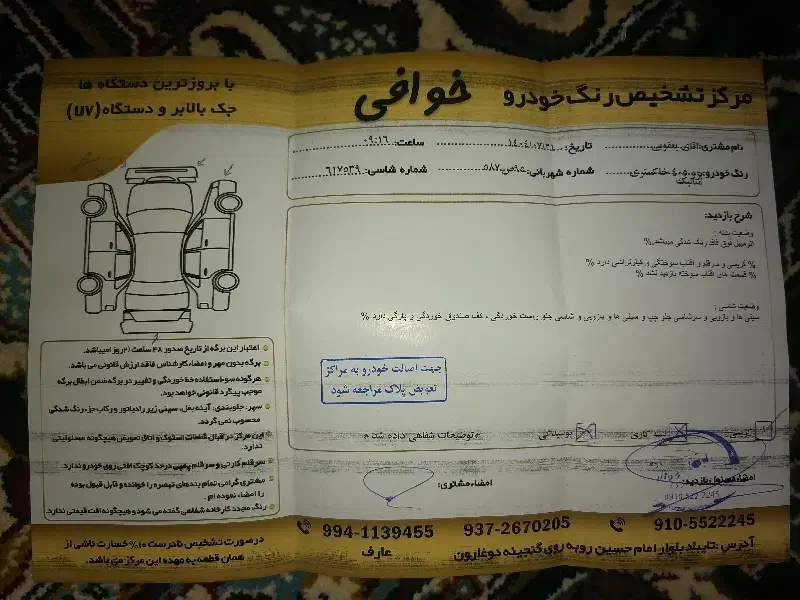 مرکز تشخیص رنگ خودرو خوافی
با بروزترین دستگاه ها
جک بالابر و دستگاه (UV)
نام مشتری: آقای یعقوبی
تاریخ: ۱۴۰۴/۰۷/۲۱
ساعت: ۰۹:۱۶
رنگ خودرو: پژو ۴۰۵ خاکستری متالیک
شماره شهربانی: ۹۵ص۵۸۷
شماره شاسی: ۶۱۷۵۳۹
شرح بازدید:
وضعیت بدنه :
اتومبیل فوق فاقد رنگ شدگی میباشد.%
% گریس و سرقلم و آفتاب سوختگی و کیلرتراشی دارد %
% قسمت های آفتاب سوخته بازدید نشد %
وضعیت شاسی :
سینی ها و بازویی و سرشاسی جلو چپ و سینی ها و بازویی و شاسی جلو راست خوردگی ، کف صندوق خوردگی و پارگی دارد %
جهت اصالت خودرو به مراکز
تعویض پلاک مراجعه شود
پوسیدگی
توضیحات شفاهی داده شد
امضاء مسئول بازدید:
امضاء مشتری:
0910 522 2245
اعتبار این برگه از تاریخ صدور ۴۸ ساعت (۲ روز) میباشد.
برگه بدون مهر و امضاء کارشناس فاقد ارزش قانونی می باشد.
هرگونه سوء استفاده خط خوردگی و تغییر در برگه ضمن ابطال برگه
موجب پیگرد قانونی خواهد بود.
سپر، جلوپنجره، آینه بغل، سینی زیر رادیاتور و رکاب جزء رنگ شدگی
محسوب نمی گردد.
این مرکز در قبال قطعات استوک و اتاق تعویض هیچگونه مسئولیتی
ندارد.
سرقلم کارتی و سرقلم پمپی در حد کوچک افتی روی خودرو ندارد.
مشتری گرامی تمام بندهای تبصره را خوانده و قابل قبول بوده
را امضاء نموده ام.
رنگ مجدد کارخانه شفاهی گفته می شود و هیچگونه افت قیمتی ندارد.
در صورت تشخیص نادرست ۱۰% خسارت ناشی از
همان قطعه به عهده این مرکز می باشد.
910-5522245
937-2670205
994-1139455
عارف
آدرس : تایباد بلوار امام حسین روبه روی گنجینه دوغارون